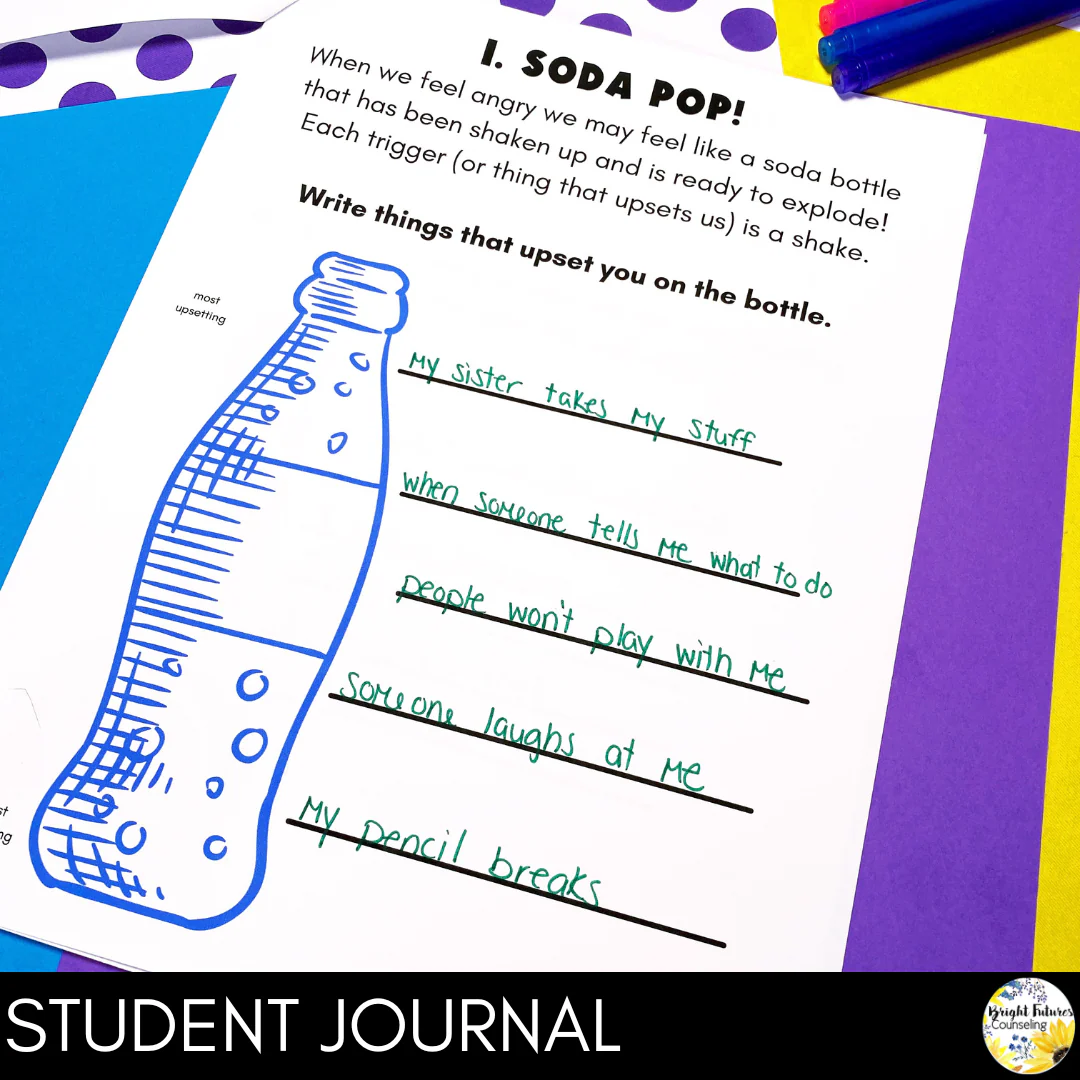 1. SODA POP!
When we feel angry we may feel like a soda bottle
that has been shaken up and is ready to explode!
Each trigger (or thing that upsets us) is a shake.
Write things that upset you on the bottle.
most
upsetting
My sister takes my stuff
when someone tells me what to do
people won't play with me
someone laughs at me
My pencil breaks
STUDENT JOURNAL
Bright Futures
Counseling